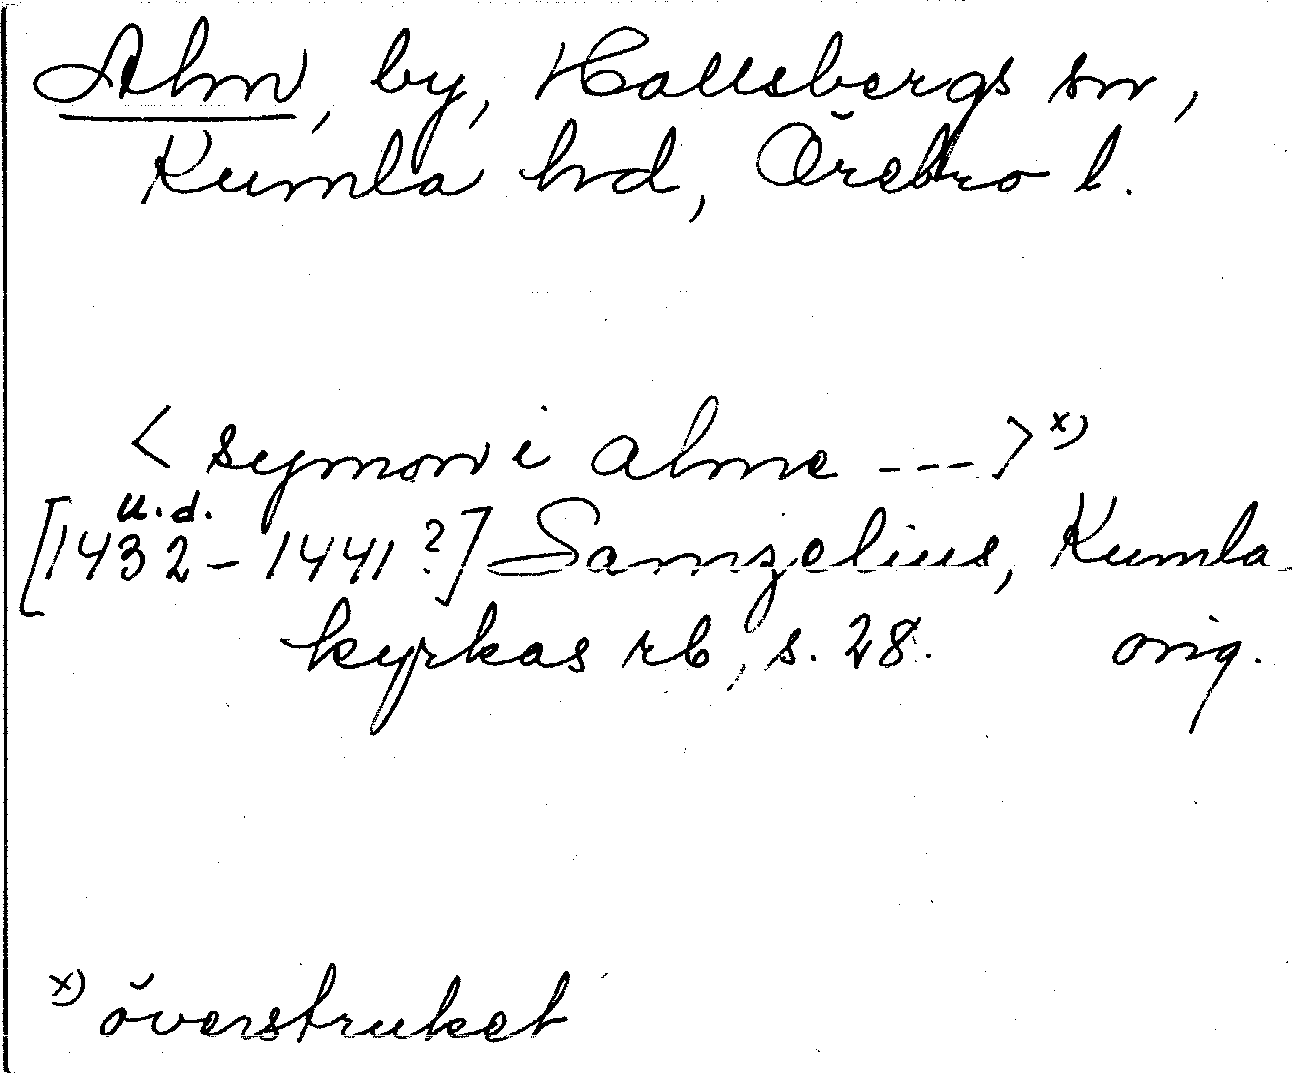 Alm, by, Hallsbergs sn,
Kumla hd, Örebro l.
< symon i alme --- > x)
u.d.
[1432-1441?] Samzelius, Kumla
kyrkas rb, s. 28. orig.
x) överstruket